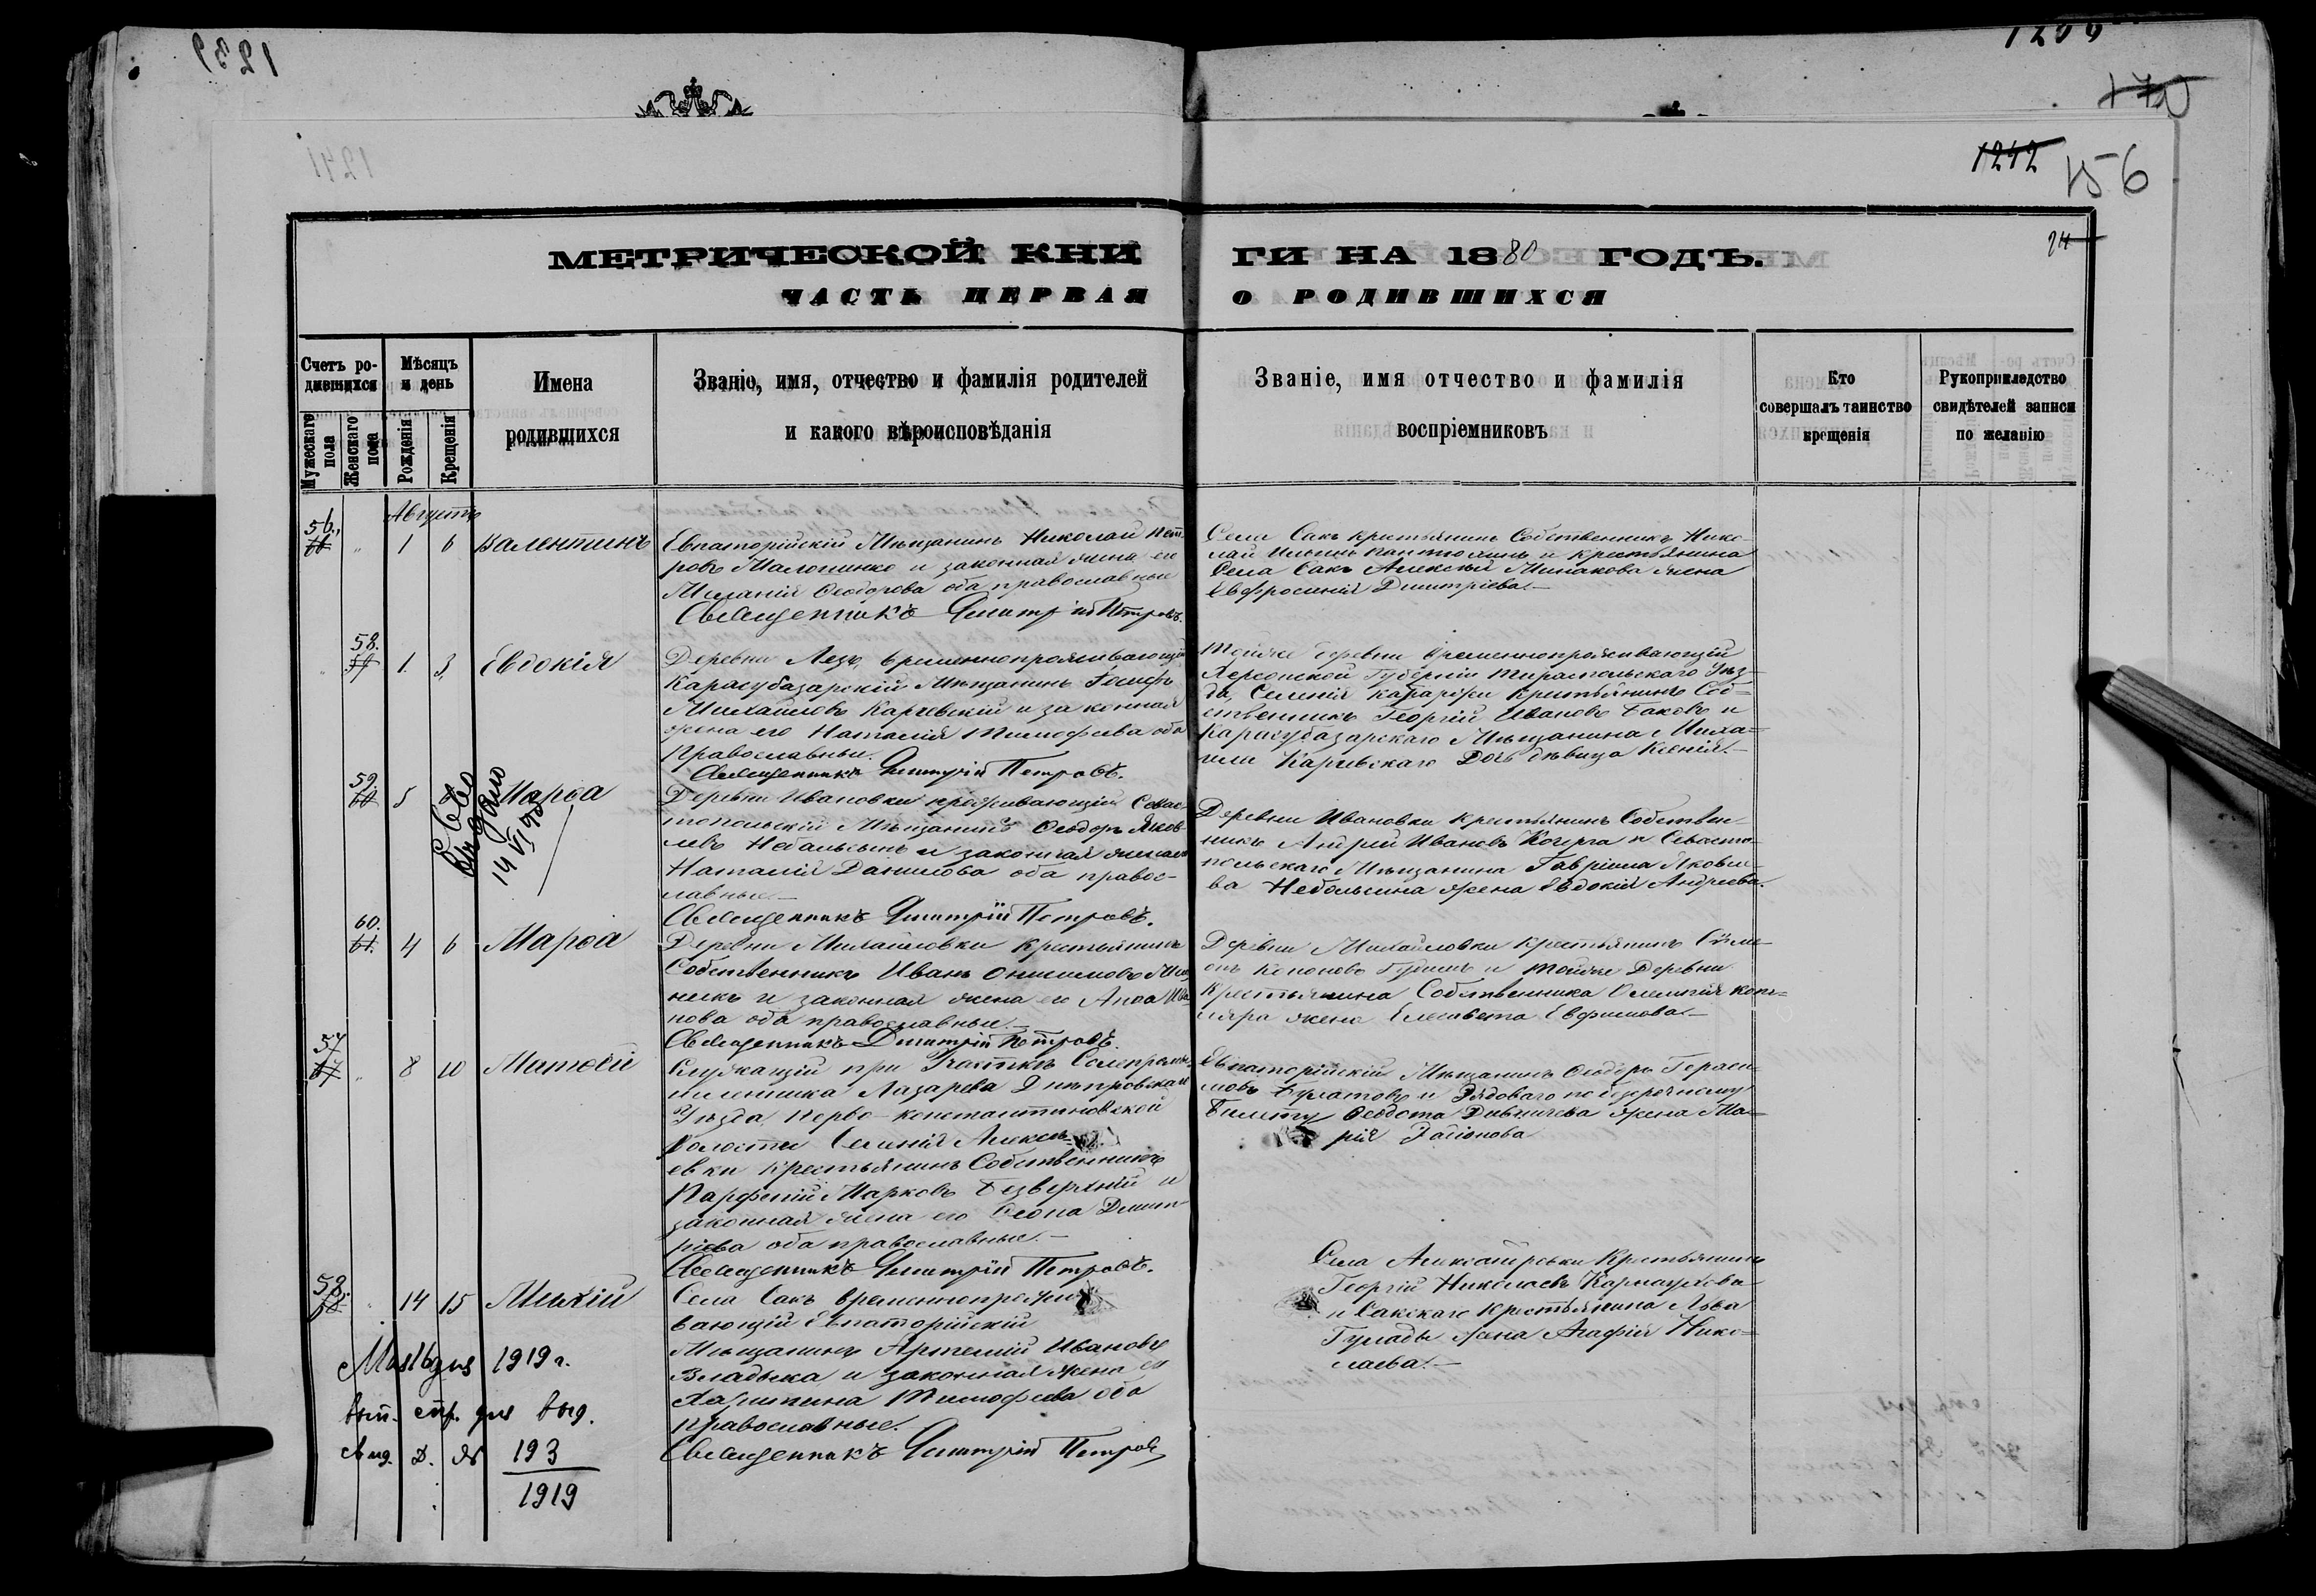 1239
1242
156
24
МЕТРИЧЕСКОЙ КНИ ГИ НА 1880 ГОДЪ.
ЧАСТЬ ПЕРВАЯ О РОДИВШИХСЯ
Счетъ ро-
дившихся
Мужескаго
пола
Женскаго
пола
Мѣсяцъ
и день
Рожденія
Крещенія
Имена
родившихся
Званіе, имя, отчество и фамилія родителей
и какого вѣроисповѣданія
Званіе, имя отчество и фамилія
воспріемниковъ
Кто
совершалъ таинство
крещенія
Рукоприкладство
свидѣтелей записи
по желанію
Августъ
56. 1 6 Валентинъ
Евпаторійскій Мѣщанинъ Николай Пет-
ровъ и законная жена его
Меланія Ѳеодорова оба православные
Священникъ Димитрій Петровъ.
Села Сакъ Крестьянинъ Собственникъ Нико-
лай и крестьянина
Села Сакъ Алексѣя Минакова жена
Евфросинія Димитріева.—
58. 1. 3. Евдокія
Деревни временнопроживающій
Карасубазарскій Мѣщанинъ Іосифъ
Михайловъ Карчевскій и законная
жена его Наталія Тимофеева оба
православные.
Священникъ Димитрій Петровъ.
Тойже деревни временнопроживающій
Херсонской Губерніи Тираспольскаго Уѣз-
да, Селенія крестьянинъ Соб-
ственникъ Георгій Ивановъ Баковъ и
Карасубазарскаго Мѣщанина Миха-
ила Карчевскаго Дочь дѣвица Ксенія.—
59. 5 Марѳа
Св-во
выдано
14 VI
Деревни Ивановки проживающій Севас-
топольскій Мѣщанинъ Ѳеодоръ Яков-
левъ Небольсинъ и законная жена его
Наталія Данилова оба правос-
лавные.—
Священникъ Димитрій Петровъ.
Деревни Ивановки крестьянинъ Собствен-
никъ Андрей Ивановъ Кочерга и Севасто-
польскаго Мѣщанина Гавріила Яковле-
ва Небольсина жена Евдокія Андреева.
60. 4 6 Марѳа
Деревни Михайловки крестьянинъ
Собственникъ Иванъ Онисимовъ
и законная жена его Анна Ива-
нова оба православные.—
Священникъ Димитрій Петровъ.
Деревни Михайловки крестьянинъ Симе-
онъ Кононовъ и тойже Деревни
Крестьянина Собственника
жена Елисавета Евфимова.—
57 8 10 Матвѣй
Служащій при Участкѣ Солепромы-
шленника Лазарева Днѣпровскаго
Уѣзда, Перво-константиновской
Волости Селенія Алексѣ-
евки крестьянинъ Собственникъ
Парфеній Марковъ Безверхній и
законная жена его Ѳеона Димит-
ріева оба православные.—
Священникъ Димитрій Петровъ.
Евпаторійскій Мѣщанинъ Ѳеодоръ Гераси-
мовъ Булатовъ и Рядоваго по безсрочному
билету Ѳеодота жена Ма-
рія
58. 14 15 Мелхій
Села Сакъ временнопрожи-
вающій Евпаторійскій
Мѣщанинъ Артемій Ивановъ
Владыка и законная жена его
Харитина Тимофеева оба
православные.
Священникъ Димитрій Петровъ
Села крестьянинъ
Георгій Николаевъ
и Сакскаго крестьянина Льва
жена Агафія Нико-
лаева.—
Мая 16 дня 1919 г.
вып. спр. для выд.
Д. № 193
1919